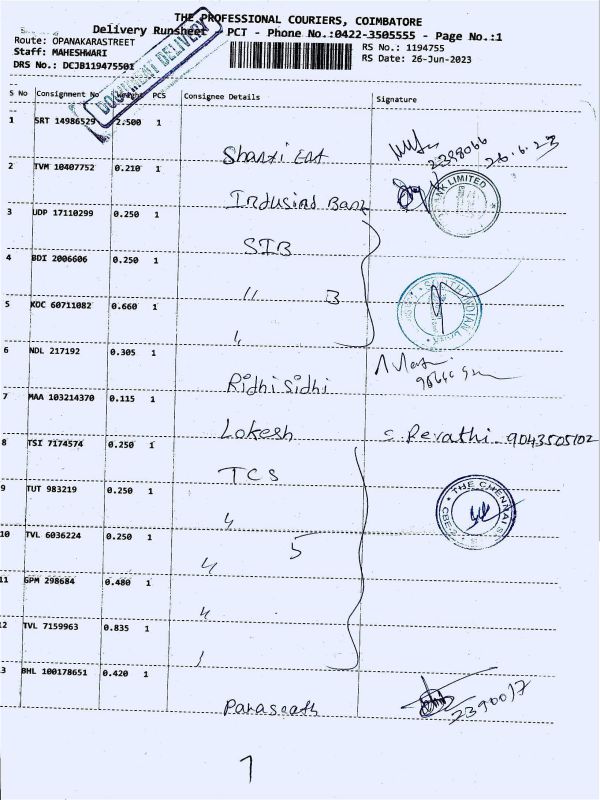 THE PROFESSIONAL COURIERS, COIMBATORE
Delivery Runsheet PCT - Phone No.:0422-3505555 - Page No.:1
Route: OPANAKARASTREET
RS No.: 1194755
Staff: MAHESHWARI
RS Date: 26-Jun-2023
DRS No.: DCJB1194755501
DOCUMENT DELIVERY
S No Consignment No Weight PCS Consignee Details Signature
1 SRT 14986529 2.500 1 Shanti Ent 2398066 26.6.23
2 TVM 10407752 0.210 1 Indusind Bank
BANK LIMITED
3 UDP 17110299 0.250 1 SIB
4 BDI 2006606 0.250 1 " 3
SOUTH INDIAN
5 KOC 60711082 0.660 1 "
6 NDL 217192 0.305 1 Ridhi Sidhi
7 MAA 103214370 0.115 1 Lokesh S. Revathi - 9043505102
8 TSI 7174574 0.250 1 TCS
THE CHENNAI
CBE-2
9 TUT 983219 0.250 1 "
10 TVL 6036224 0.250 1 " 5
11 GPM 298684 0.480 1 "
12 TVL 7159963 0.835 1 "
13 BHL 100178651 0.420 1 Parasnath 2390017
7